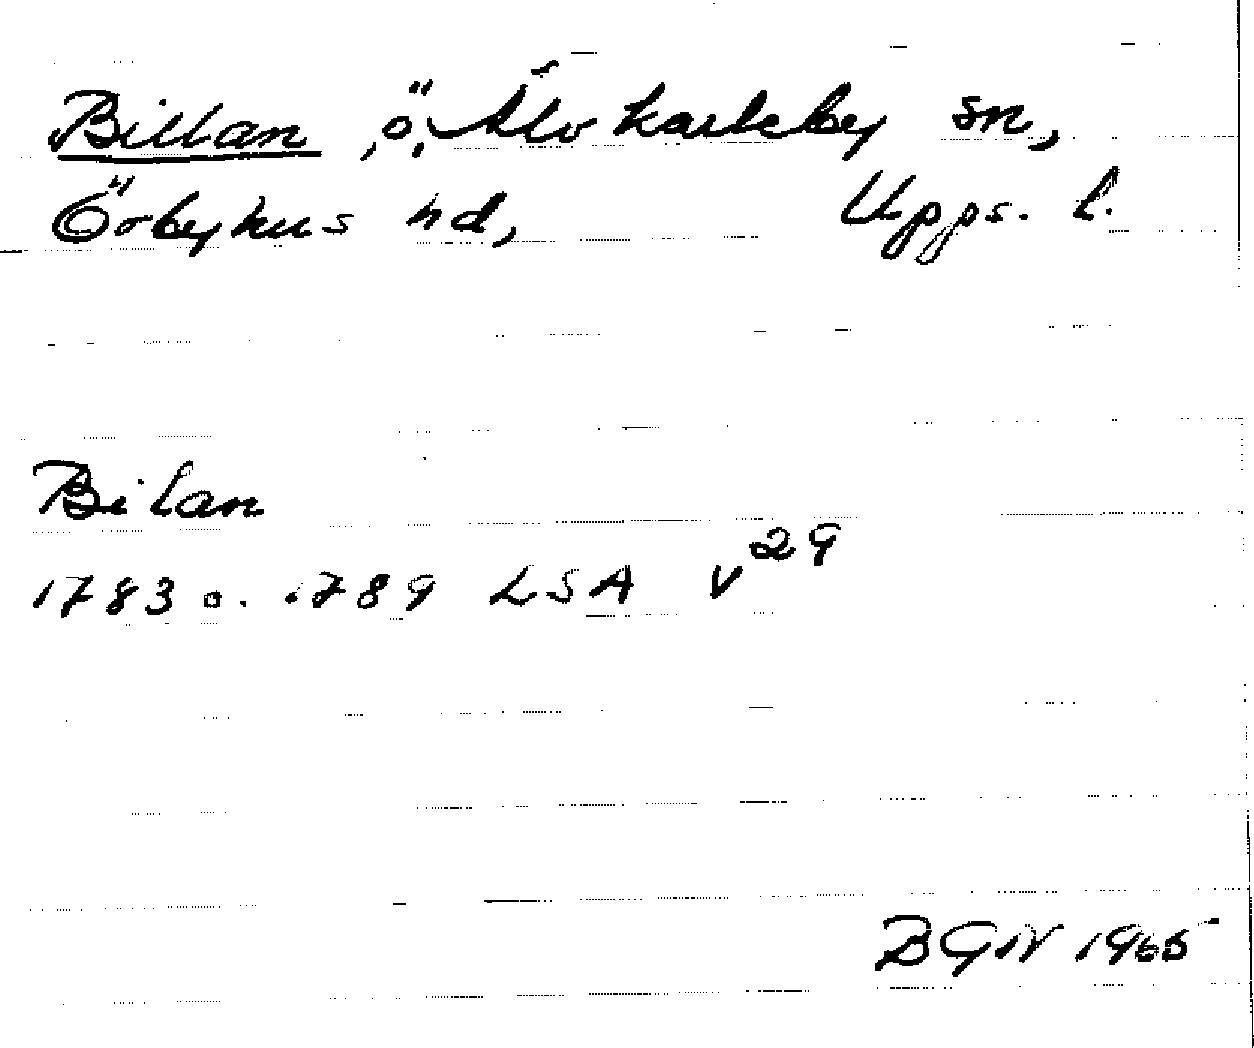 Billan, ö, Älvkarleby sn,
Örbyhus hd, Upps. l.
Bilan
1783 o. 1789 LSA V 29
BGN 1965